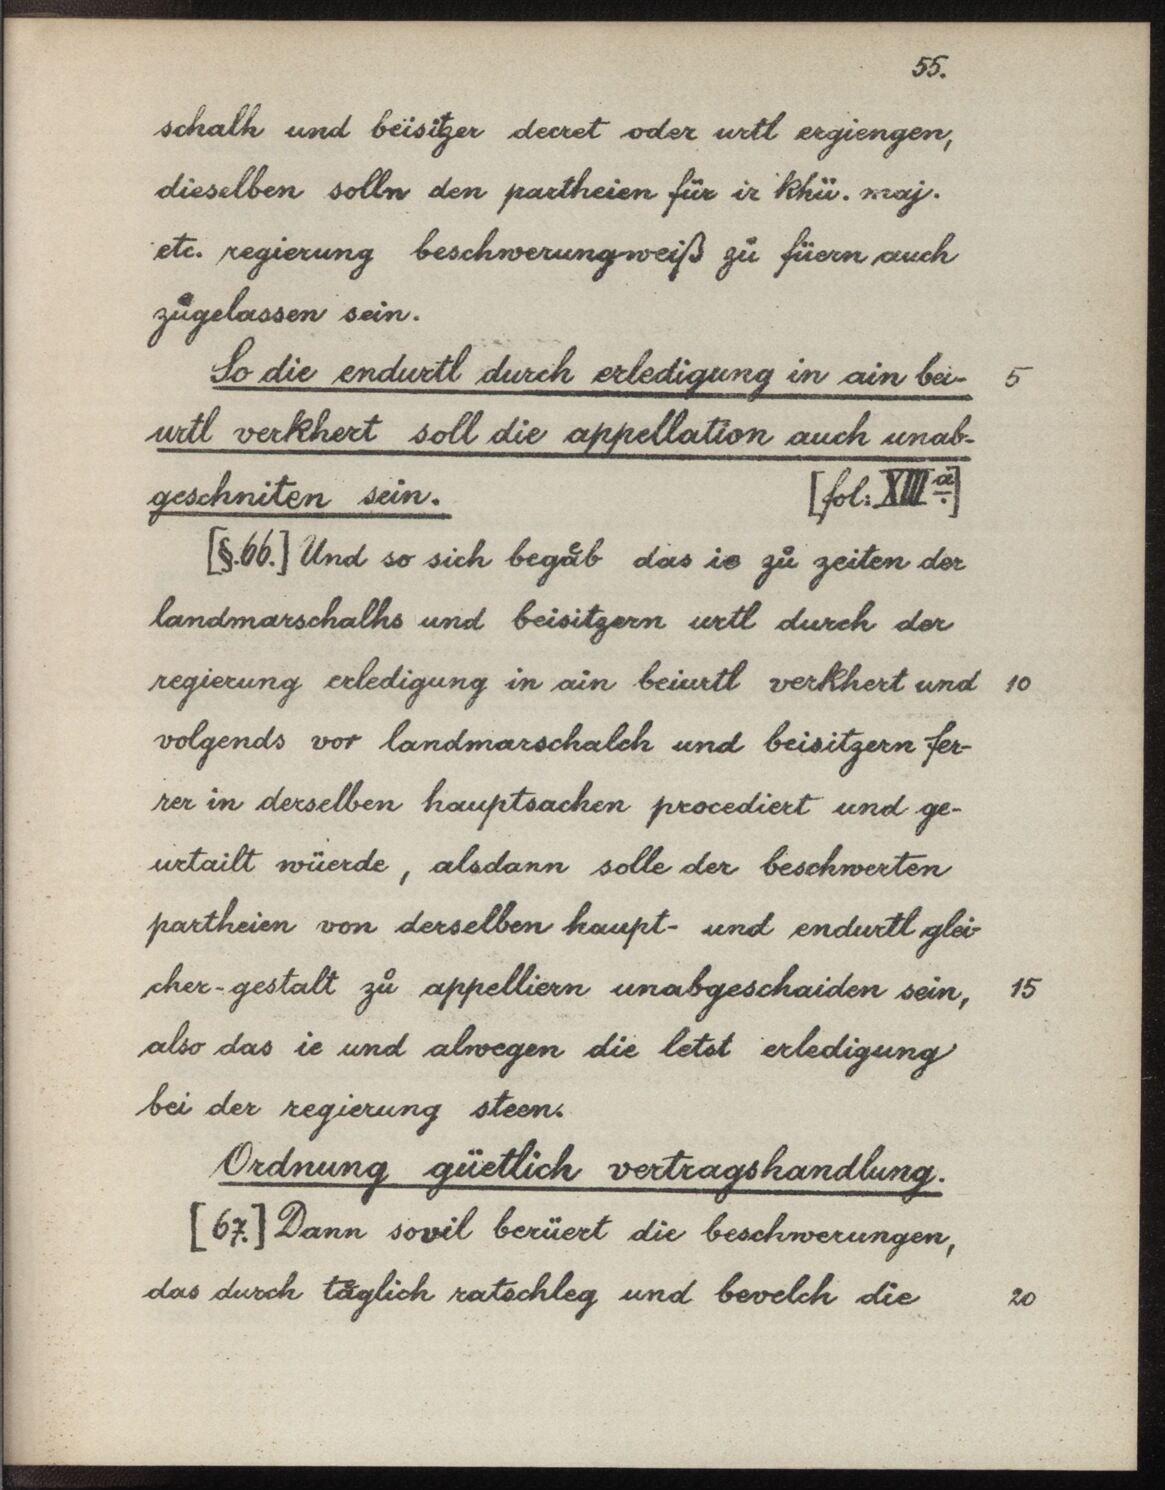 55.
schalh und beisitzer decret oder urtl ergiengen,
dieselben solln den partheien für ir khü. maj.
etc. regierung beschwerungweiß zů füern auch
zůgelassen sein.
So die endurtl durch erledigung in ain bei- 5
urtl verkhert soll die appellation auch unab-
geschniten sein. [fol: XIII a.]
[§. 66.] Und so sich begåb das ie zů zeiten der
landmarschalhs und beisitzern urtl durch der
regierung erledigung in ain beiurtl verkhert und 10
volgends vor landmarschalch und beisitzern fer-
rer in derselben hauptsachen procediert und ge-
urtailt wüerde, alsdann solle der beschwerten
partheien von derselben haupt- und endurtl glei-
cher-gestalt zů appelliern unabgeschaiden sein, 15
also das ie und alwegen die letst erledigung
bei der regierung steen.
Ordnung güetlich vertragshandlung.
[67.] Dann sovil berüert die beschwerungen,
das durch tåglich ratschleg und bevelch die 20